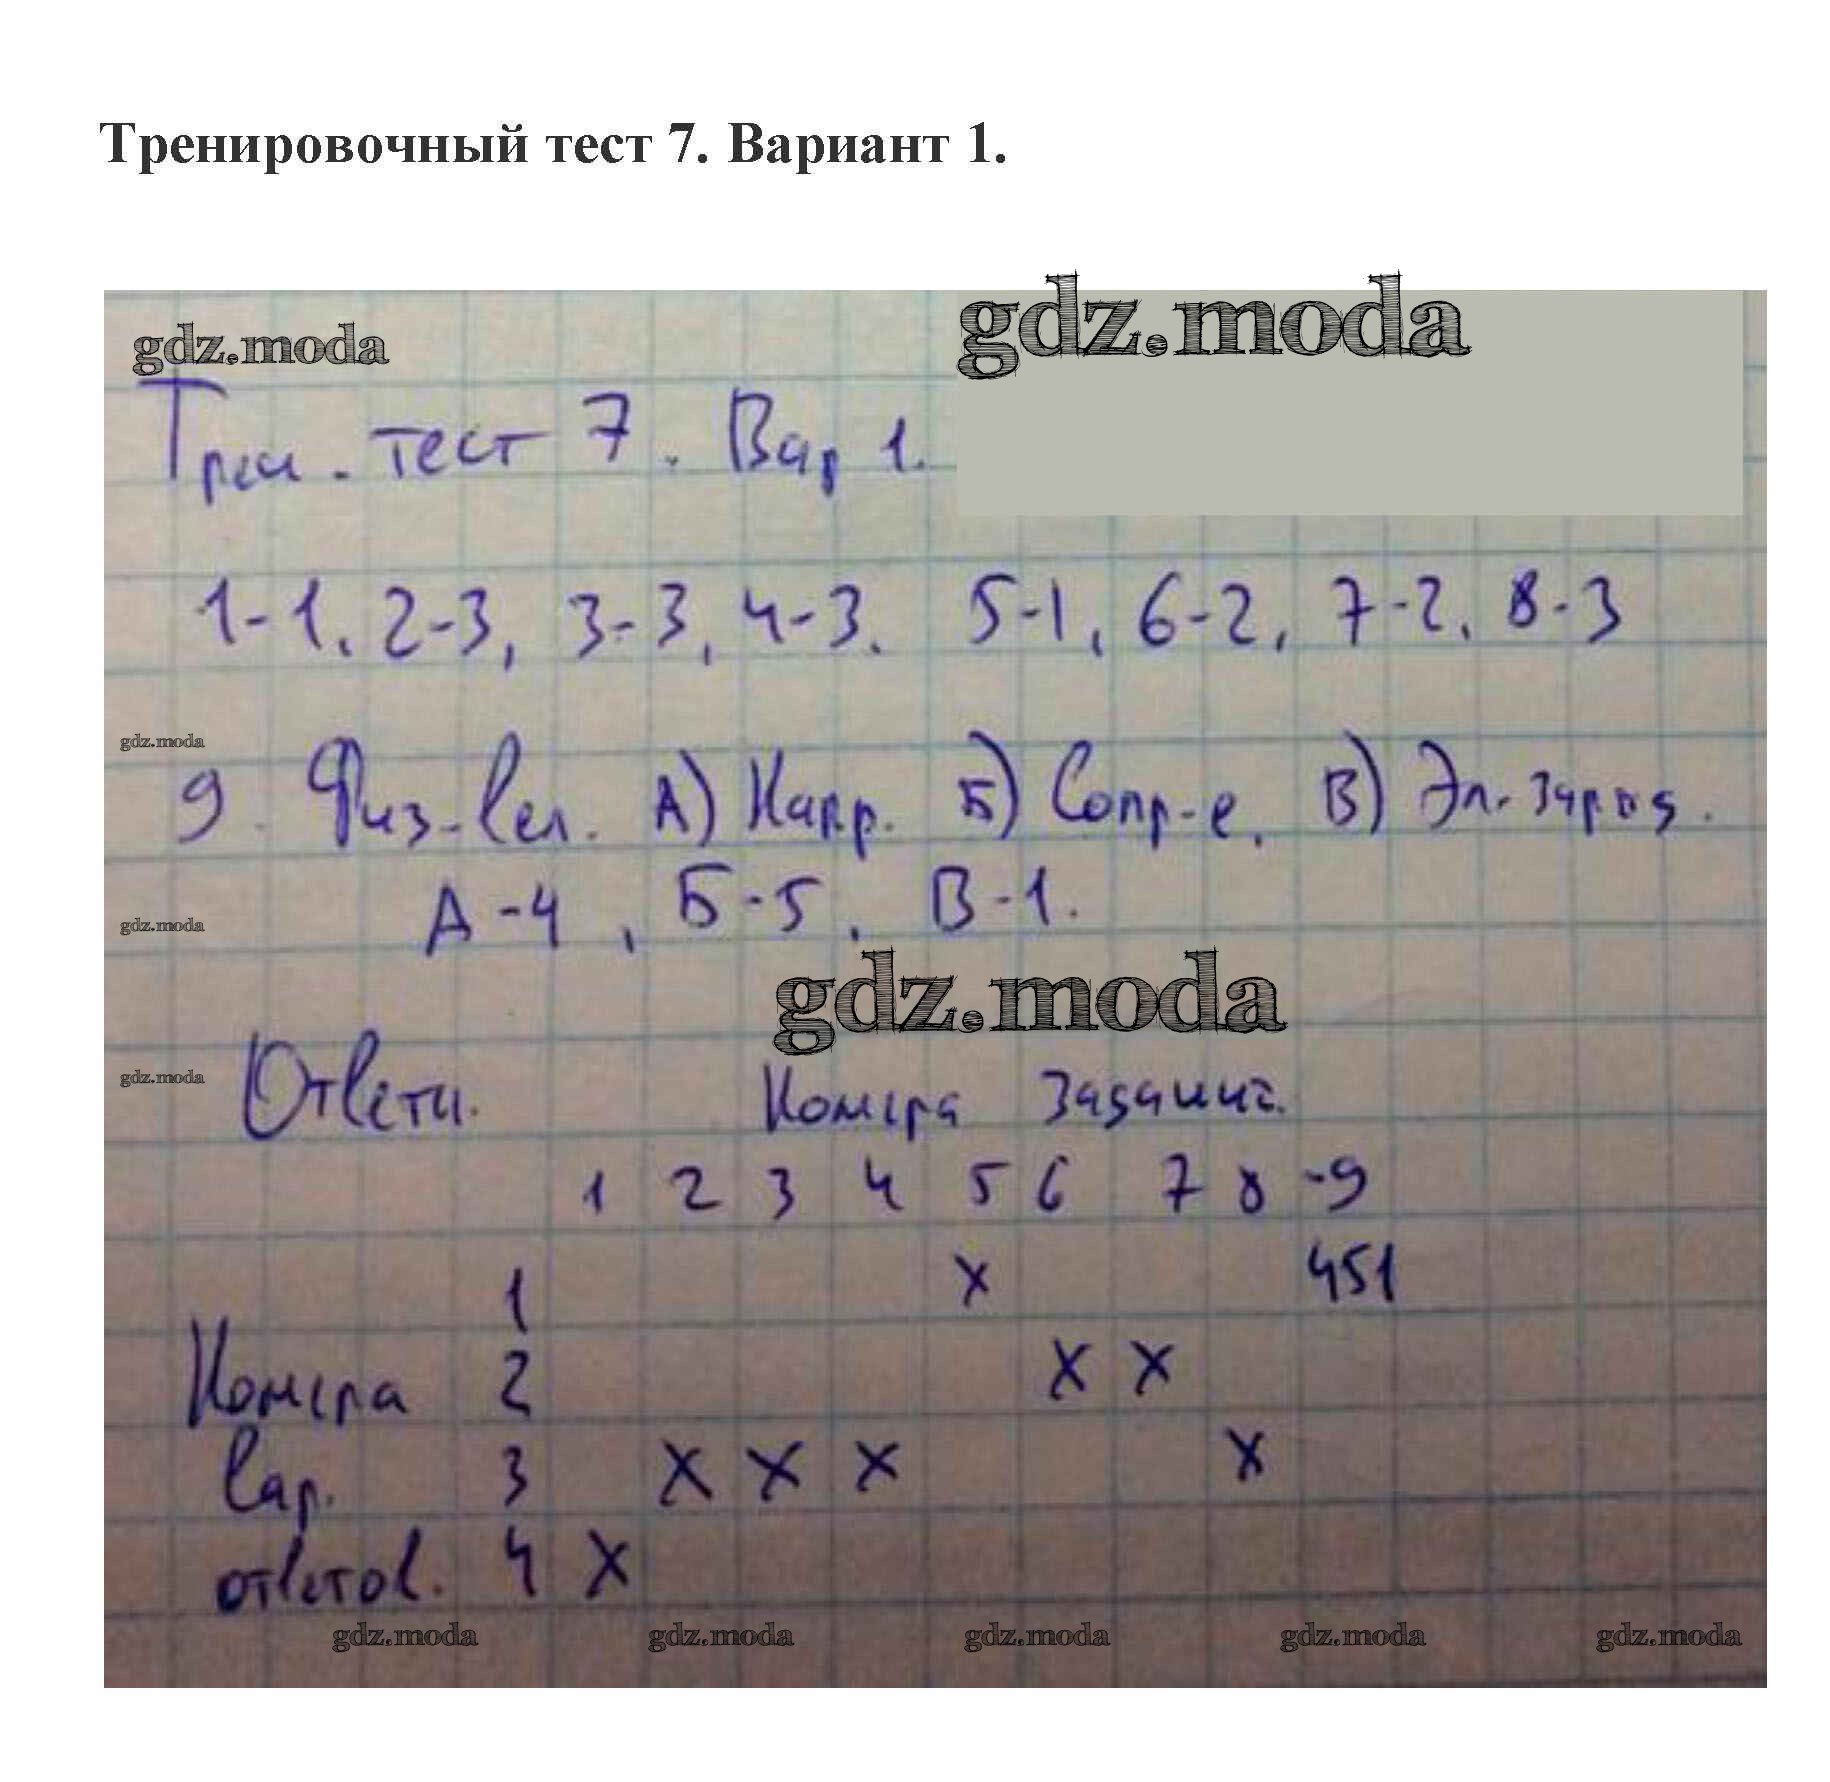 Тренировочный тест 7. Вариант 1.
gdz.moda
gdz.moda
Трен. тест 7. Вар 1.
1-1, 2-3, 3-3, 4-3. 5-1, 6-2, 7-2, 8-3
gdz.moda
9. Физ-вел. А) Напр. Б) Сопр-е. В) Эл. заряд.
А-4, Б-5, В-1.
gdz.moda
gdz.moda
gdz.moda
Ответы. Номера заданий.
1 2 3 4 5 6 7 8 9
1 х 451
Номера 2 х х
вар. 3 х х х х
ответов. 4 х
gdz.moda gdz.moda gdz.moda gdz.moda gdz.moda